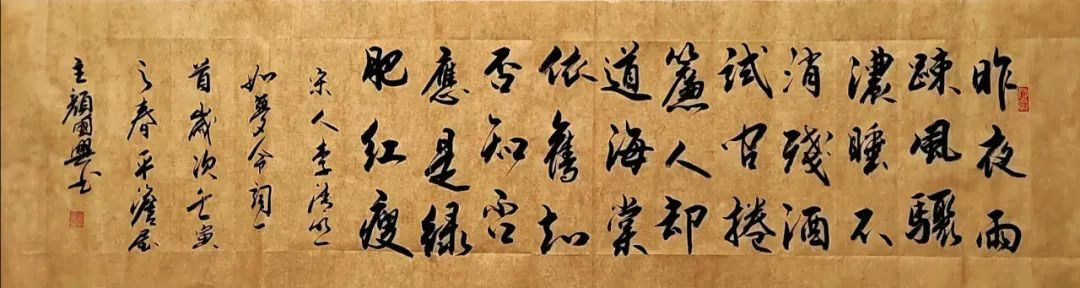 昨夜雨
踈風驟
濃睡不
消殘酒
試问捲
簾人却
道海棠
依舊知
否知否
應是緑
肥红瘦
宋人李清照
如夢令詞一
首歲次壬寅
之春平澹居
主顏國興书